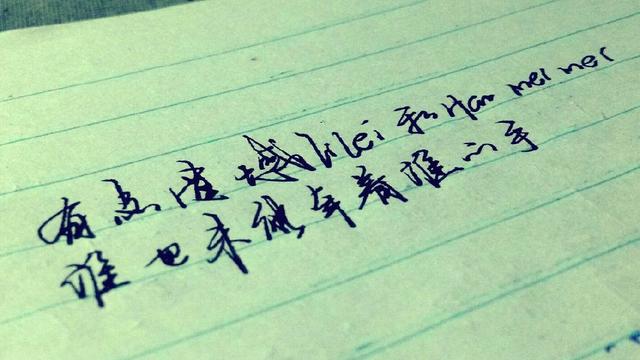 有点遗憾lilei和Han mei mei
谁也未能牵着谁的手